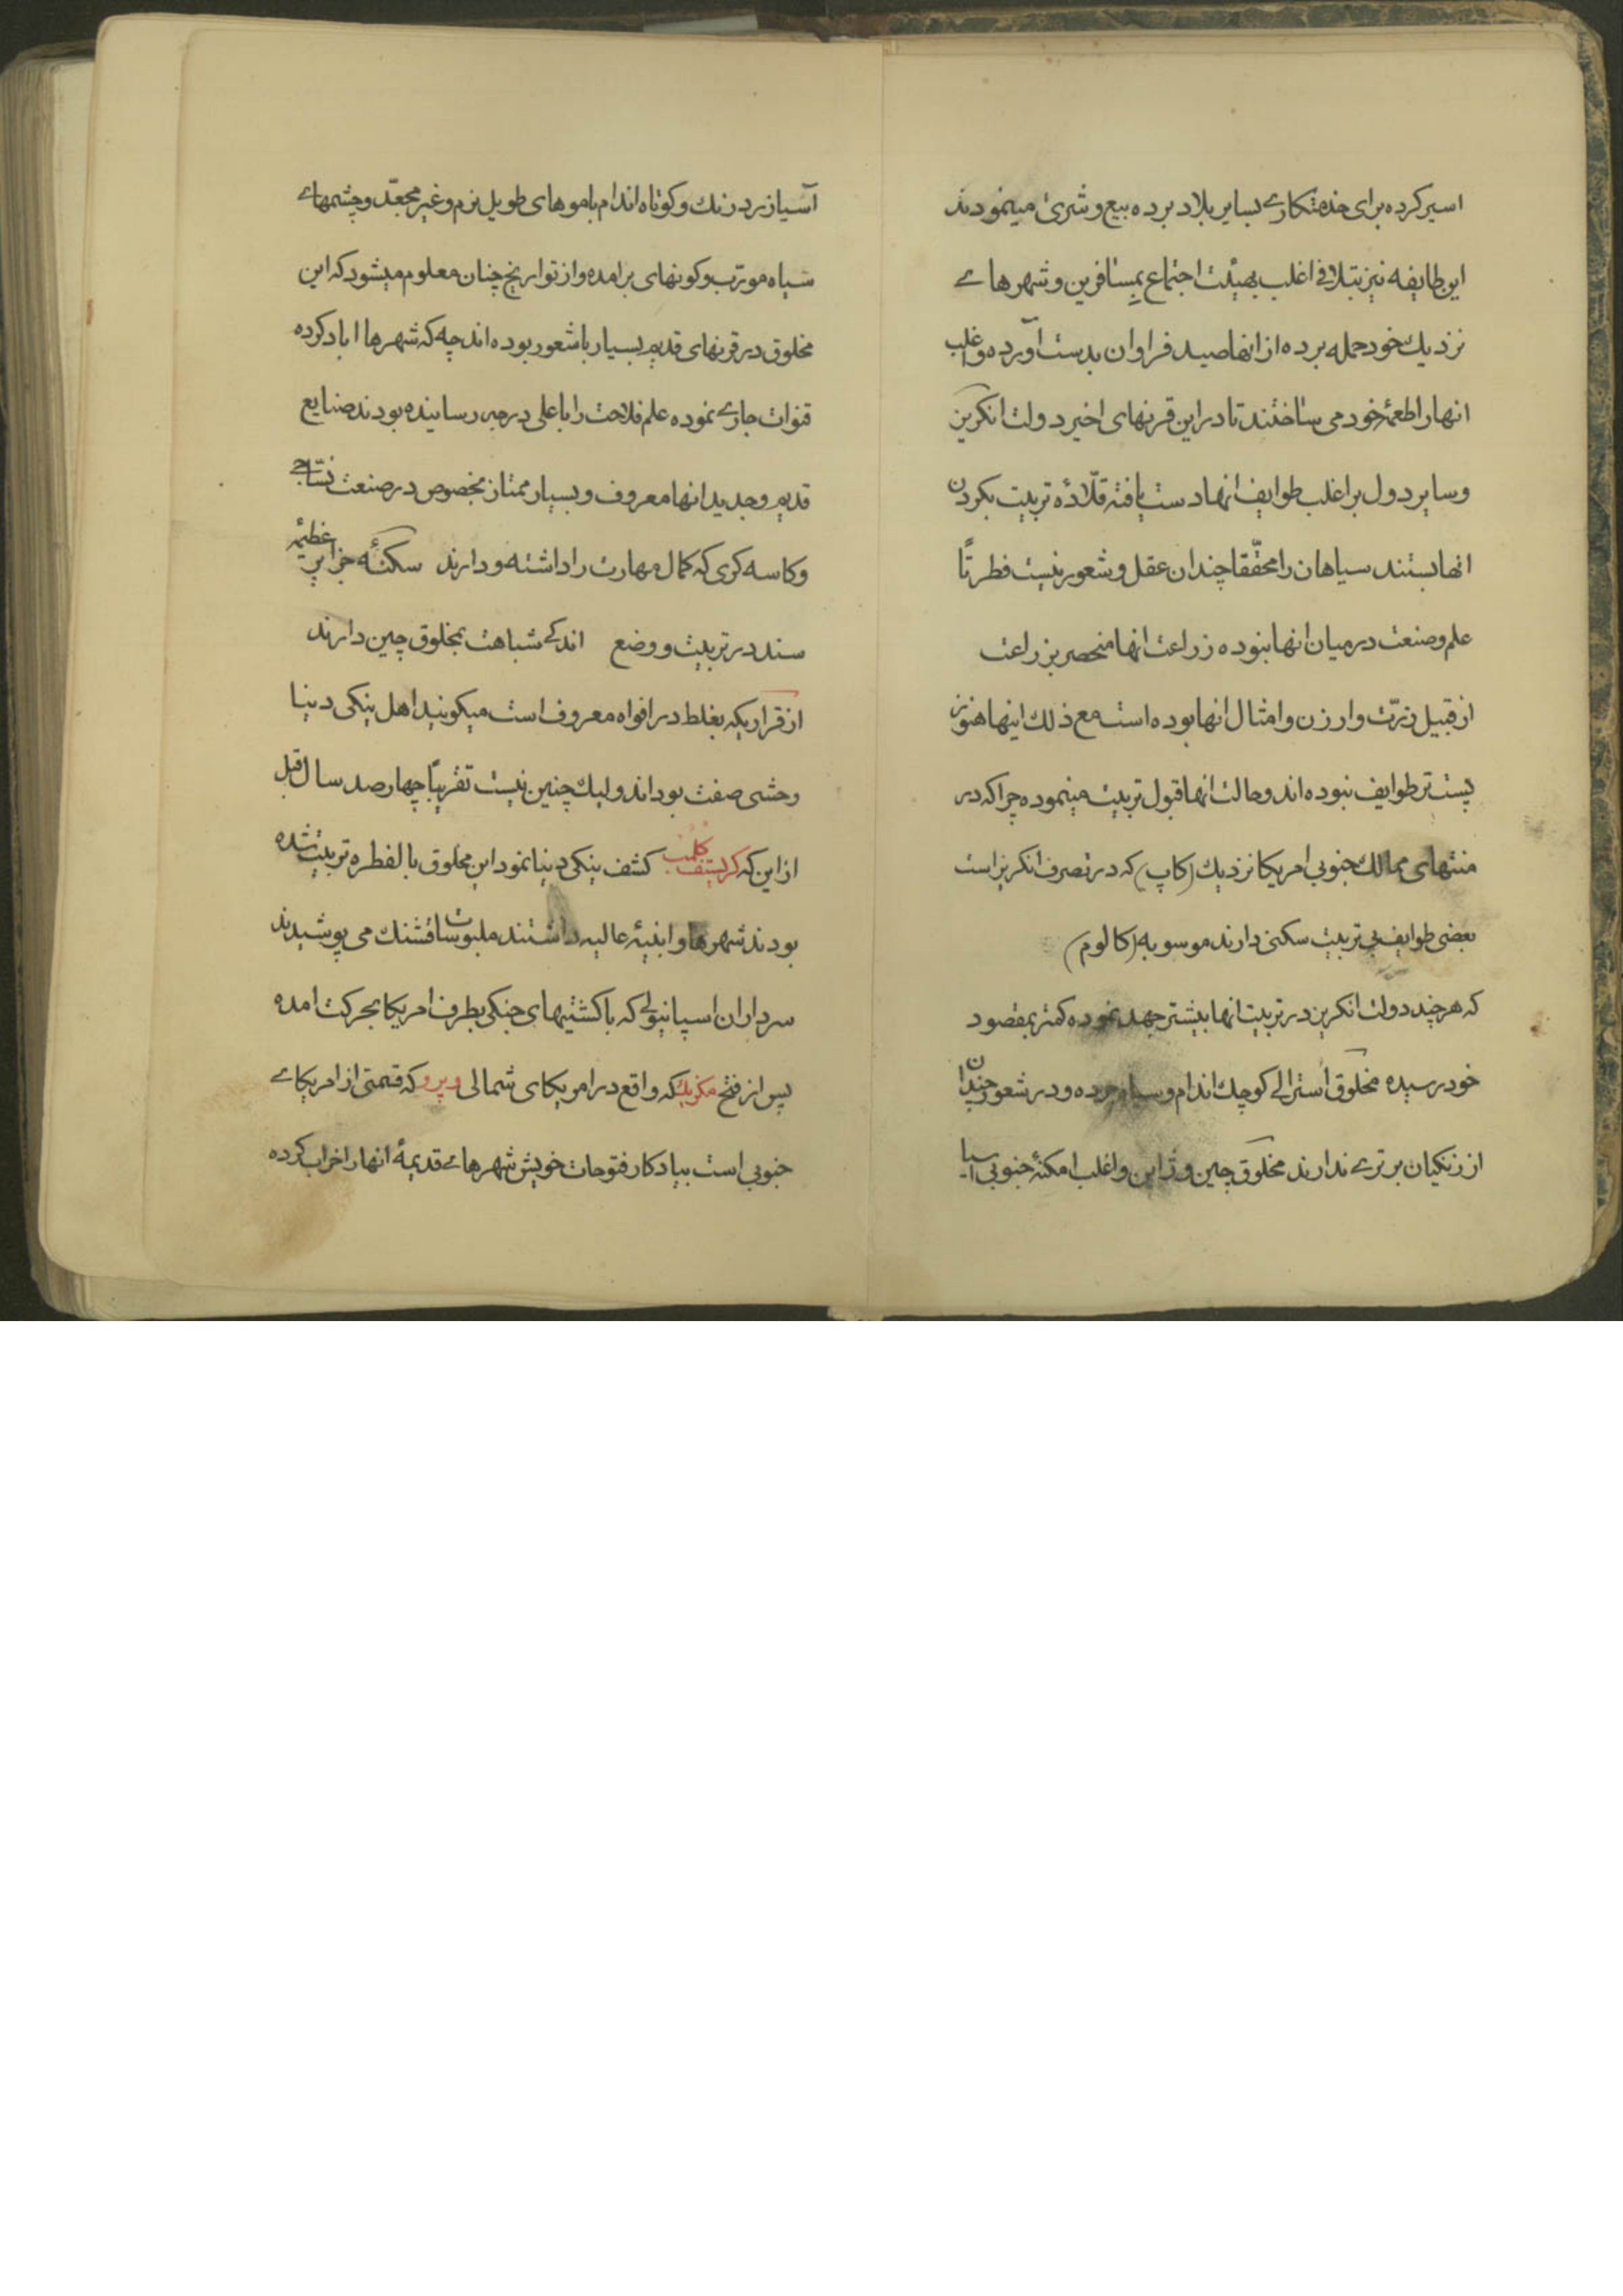 اسیر کرده برای خذمتکاری بسایر بلاد برده بیع و شری مینمودند
این طایفه نیز بتلافی اغلب بهیئت اجتماع بمسافرین و شهرهای
نزدیك خود حمله برده از انها صید فراوان بدست آورده و اغلب
انها را طعمهٔ خود می ساختند تا در این قرنهای اخیر دولت انکریز
و سایر دول بر اغلب طوایف انها دست یافته قلّادهٔ تربیت بکردن
انها بستند سیاهان را محقّقا چندان عقل و شعور نیست فطرتًا
علم و صنعت در میان انها نبوده زراعت انها منحصر بزراعت
از قبیل ذرّت و ارزن و امثال انها بوده است مع ذلك اینها هنوز
پست تر طوایف نبوده اند و حالت انها قبول تربیت مینموده چرا که در
منتهای ممالك جنوبی امریکا نزدیك (کاپ) که در تصرف انکریز است
بعضی طوایف بی تربیت سکنی دارند موسوبه (کالوم)
که هر چند دولت انکریز در تربیت انها بیشتر جهد نموده کمتر بمقصود
خود رسیده مخلوق استرالی کوچك اندام و سیاه چرده و در شعور چندان
از زنکیان برتری ندارند مخلوق چین و ژاپن و اغلب امکنهٔ جنوبی آسیا
آسیا زرد رنك و کوتاه اندام با موهای طویل نرم و غیر مجعّد و چشمهای
سیاه مورّب و کونهای برامده و از تواریخ چنان معلوم میشود که این
مخلوق در قرنهای قدیم بسیار با شعور بوده اند چه که شهرها اباد کرده
قنوات جاری نموده علم فلاحت را باعلی درجه رسانیده بودند صنایع
قدیم و جدید انها معروف و بسیار ممتاز مخصوص در صنعت نسّاجی
و کاسه کری که کمال مهارت را داشته و دارند سکنهٔ جزایر عظیمهٔ
سند در تربیت و وضع اندکی شباهت بمخلوق چین دارند
از قراریکه بغلط در افواه معروف است میکویند اهل ینکی دینا
وحشی صفت بوداند ولیك چنین نیست تقریبًا چهار صد سال قبل
از این که کریستف کلمب کشف ینکی دینا نمود این مخلوق بالفطره تربیت شده
بودند شهرها و ابنیهٔ عالیه داشتند ملبوسات قشنك می پوشیدند
سرداران اسپانیولی که با کشتیهای جنکی بطرف امریکا بحرکت امده
پس از فتح مکزیك که واقع در امریکای شمالی و پرو که قسمتی از امریکای
جنوبی است بیادکار فتوحات خویش شهرهای قدیمهٔ انها را خراب کرده